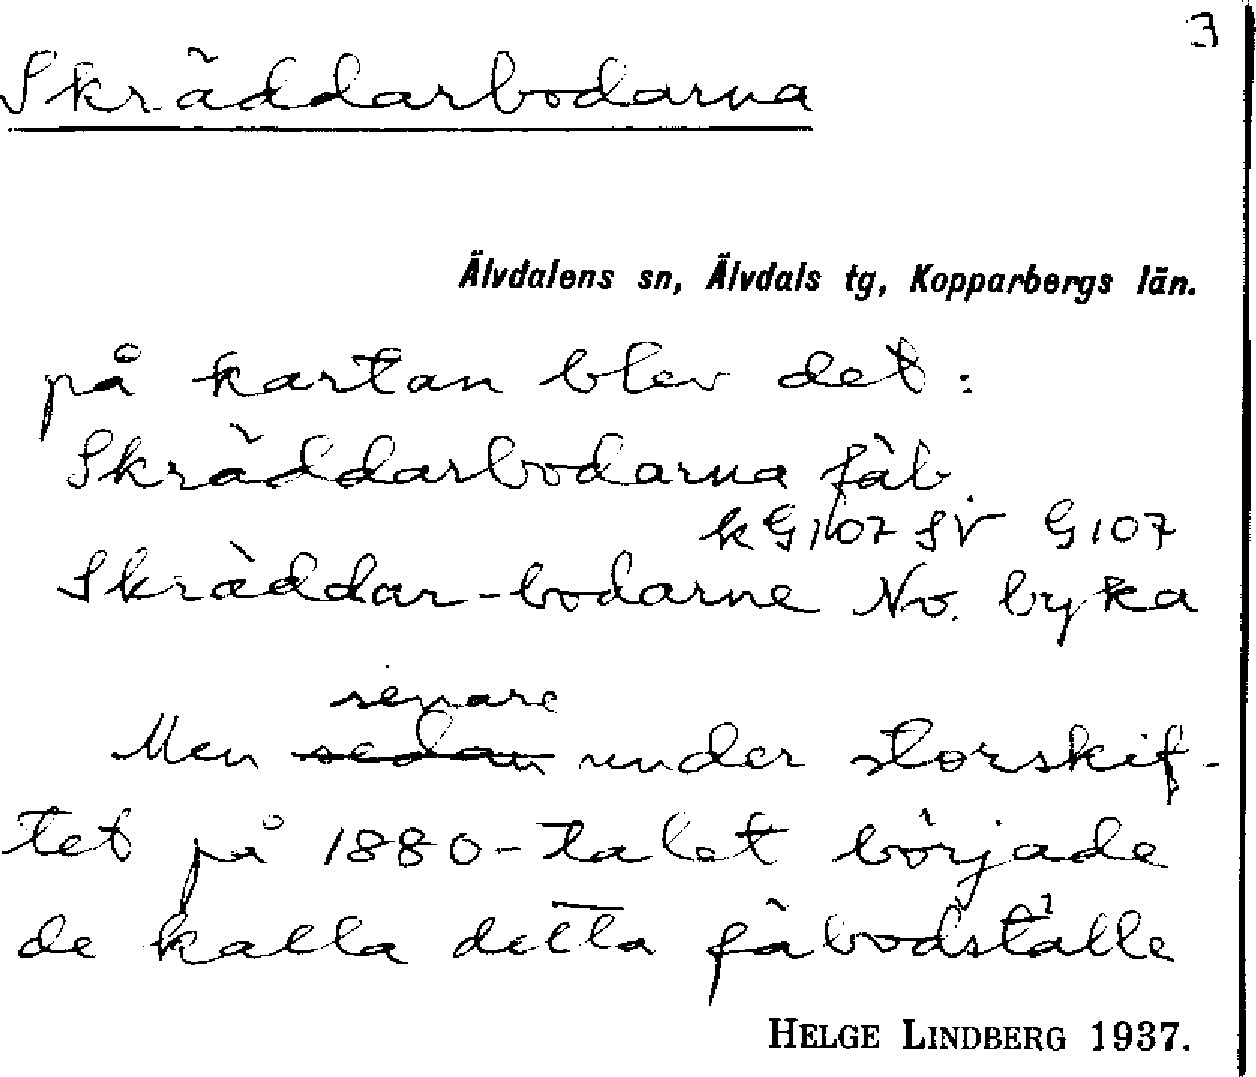 3
Skräddarbodarna
Älvdalens sn, Älvdals tg, Kopparbergs län.
på kartan blev det:
Skräddarbodarna fäb.
kG107 SV G107
Skräddar-bodarne No. byka
senare
Men sedan under storskif-
tet på 1880-talet började
de kalla detta fäbodställe
HELGE LINDBERG 1937.